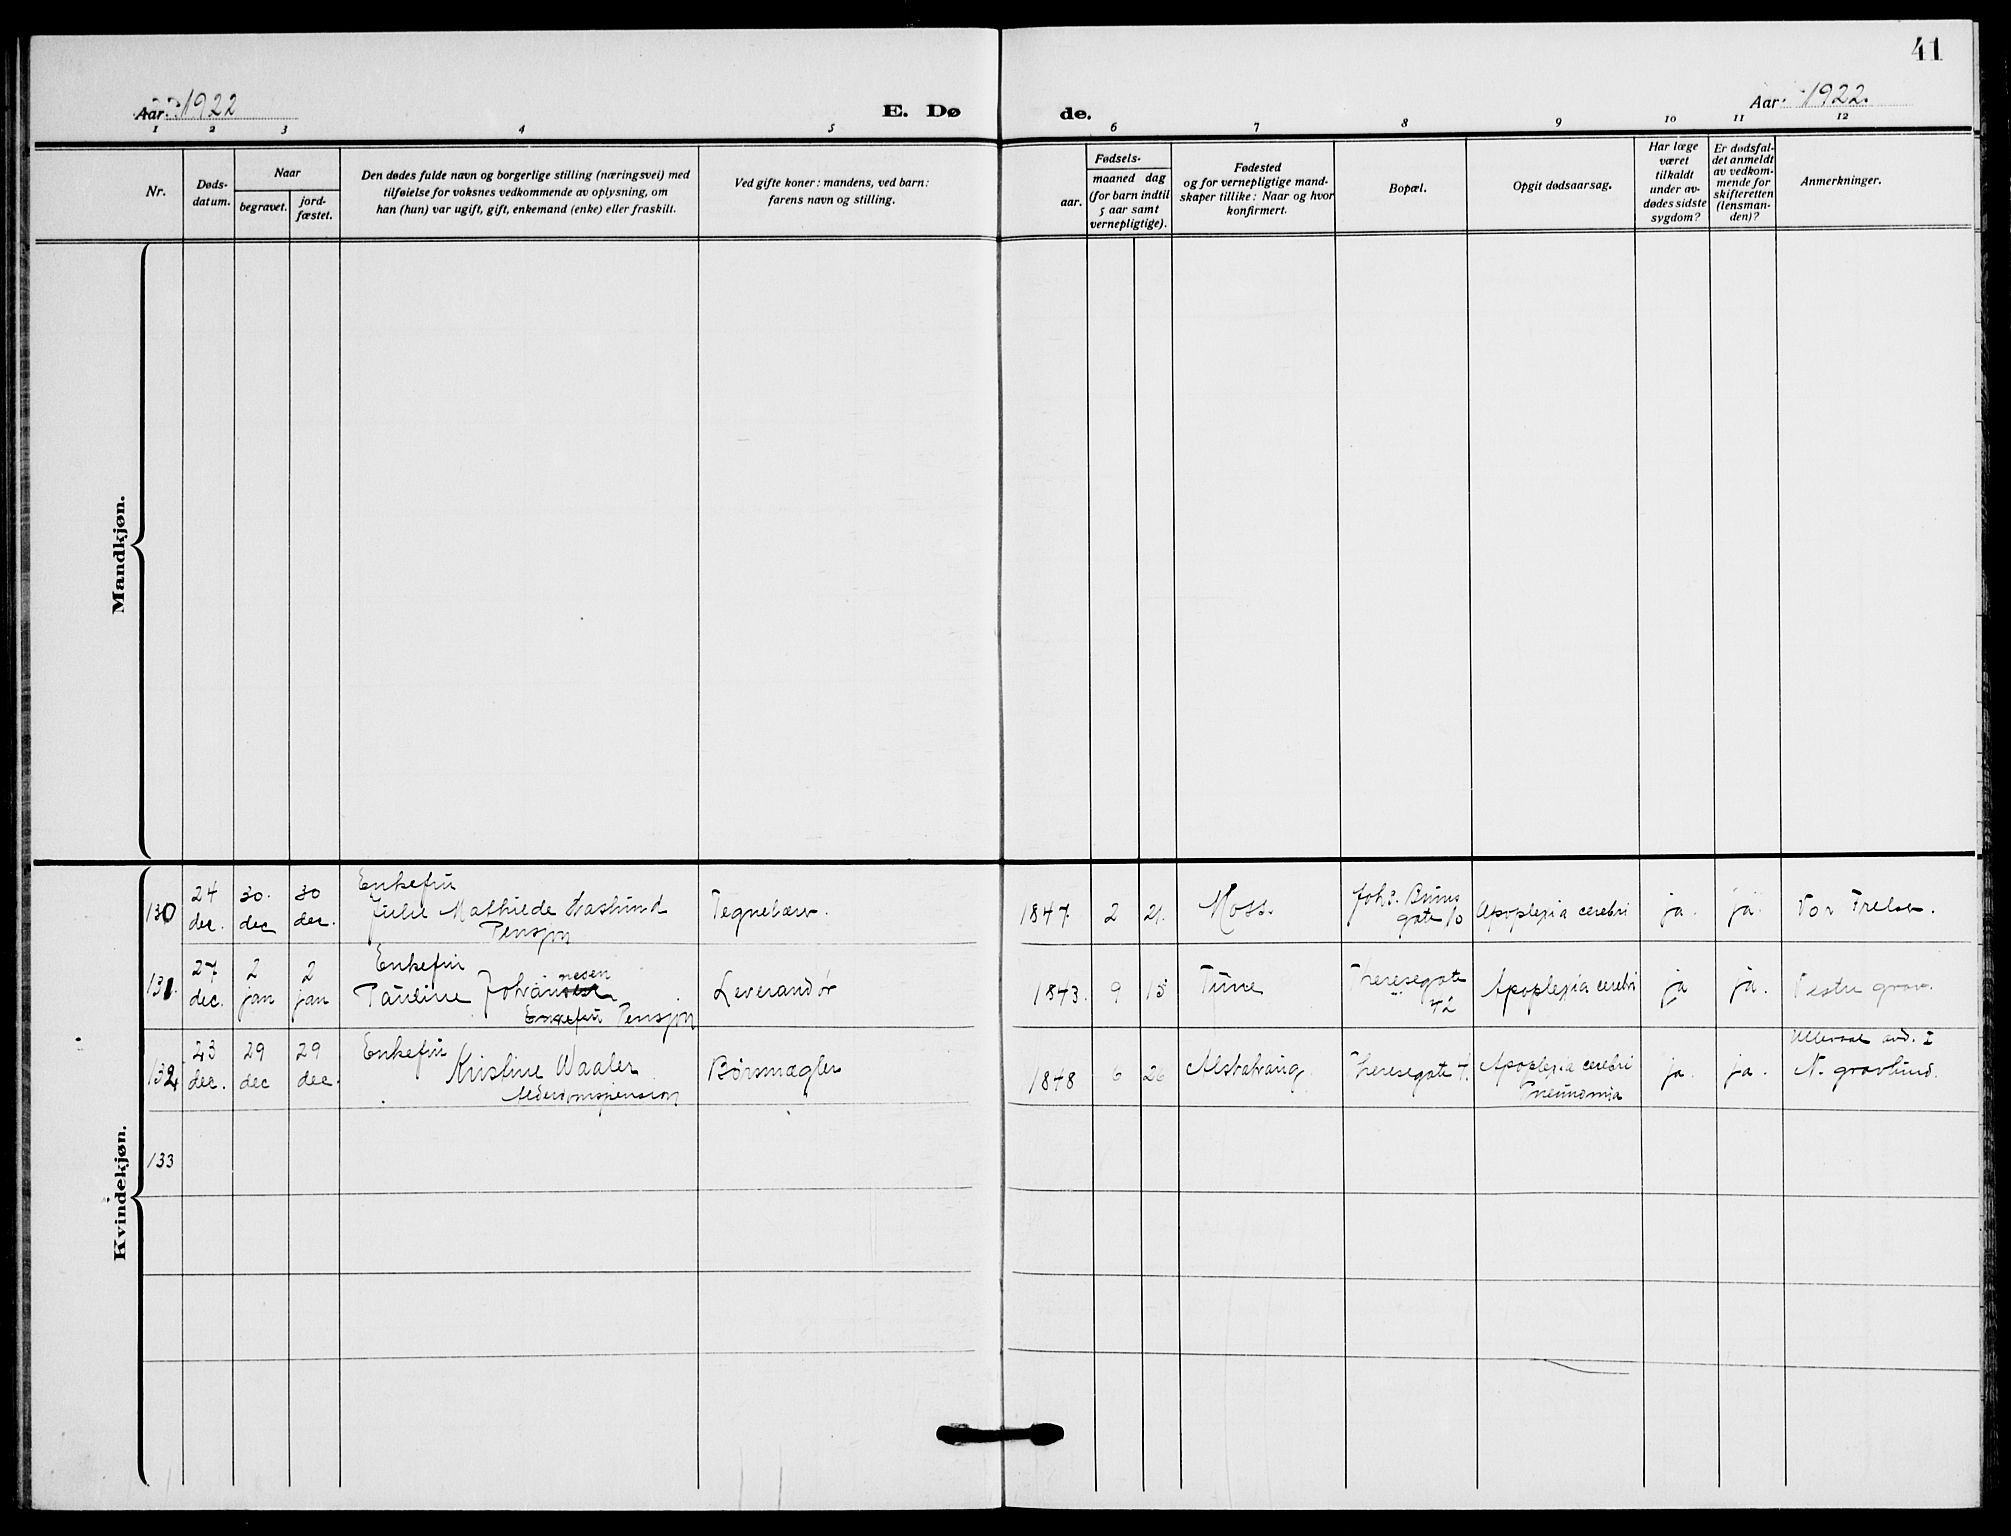 41
Aar 1922
E. Dø
de.
Aar 1922.
1 2 3 4 5 6 7 8 9 10 11 12
Nr.
Døds-
datum.
Naar
begravet.
jord-
fæstet.
Den dødes fulde navn og borgerlige stilling (næringsvei) med
tilføielse for voksnes vedkommende av oplysning, om
han (hun) var ugift, gift, enkemand (enke) eller fraskilt.
Ved gifte koner: mandens, ved barn:
farens navn og stilling.
Fødsels-
aar.
maaned dag
(for barn indtil
5 aar samt
vernepligtige).
Fødested
og for vernepligtige mand-
skaper tillike: Naar og hvor
konfirmert.
Bopæl.
Opgit dødsaarsag.
Har læge
været
tilkaldt
under av-
dødes sidste
sygdom?
Er dødsfal-
det anmeldt
av vedkom-
mende for
skifteretten
(lensman-
den)?
Anmerkninger.
Mandkjøn.
Kvindekjøn.
130
24
dec.
30.
dec
30
dec.
Enkefru
Julie Mathilde Haslund
Pensjon
1847
2
21.
Moss.
Johs. Bruns
gate 10
Apoplexia cerebri
ja.
ja.
Vor Frelser.
131.
27
dec.
2
jan
2
jan
Enkefru
nesen
Pauline Johan
Enkefru Pensjon
Leverandør
1843.
9
15
Tune
Theresegate
42
Apoplexia cerebri
ja
ja.
Vestre grav.
132
23
dec.
29
dec
29
dec.
Enkefru
Kristine Waaler
Alderdomspension
Børsmægler
1848
6
26
Theresegate
Apoplexia cerebri
Pneumonia
ja.
ja.
Ullevaal avd. I
N. gravlund.
133